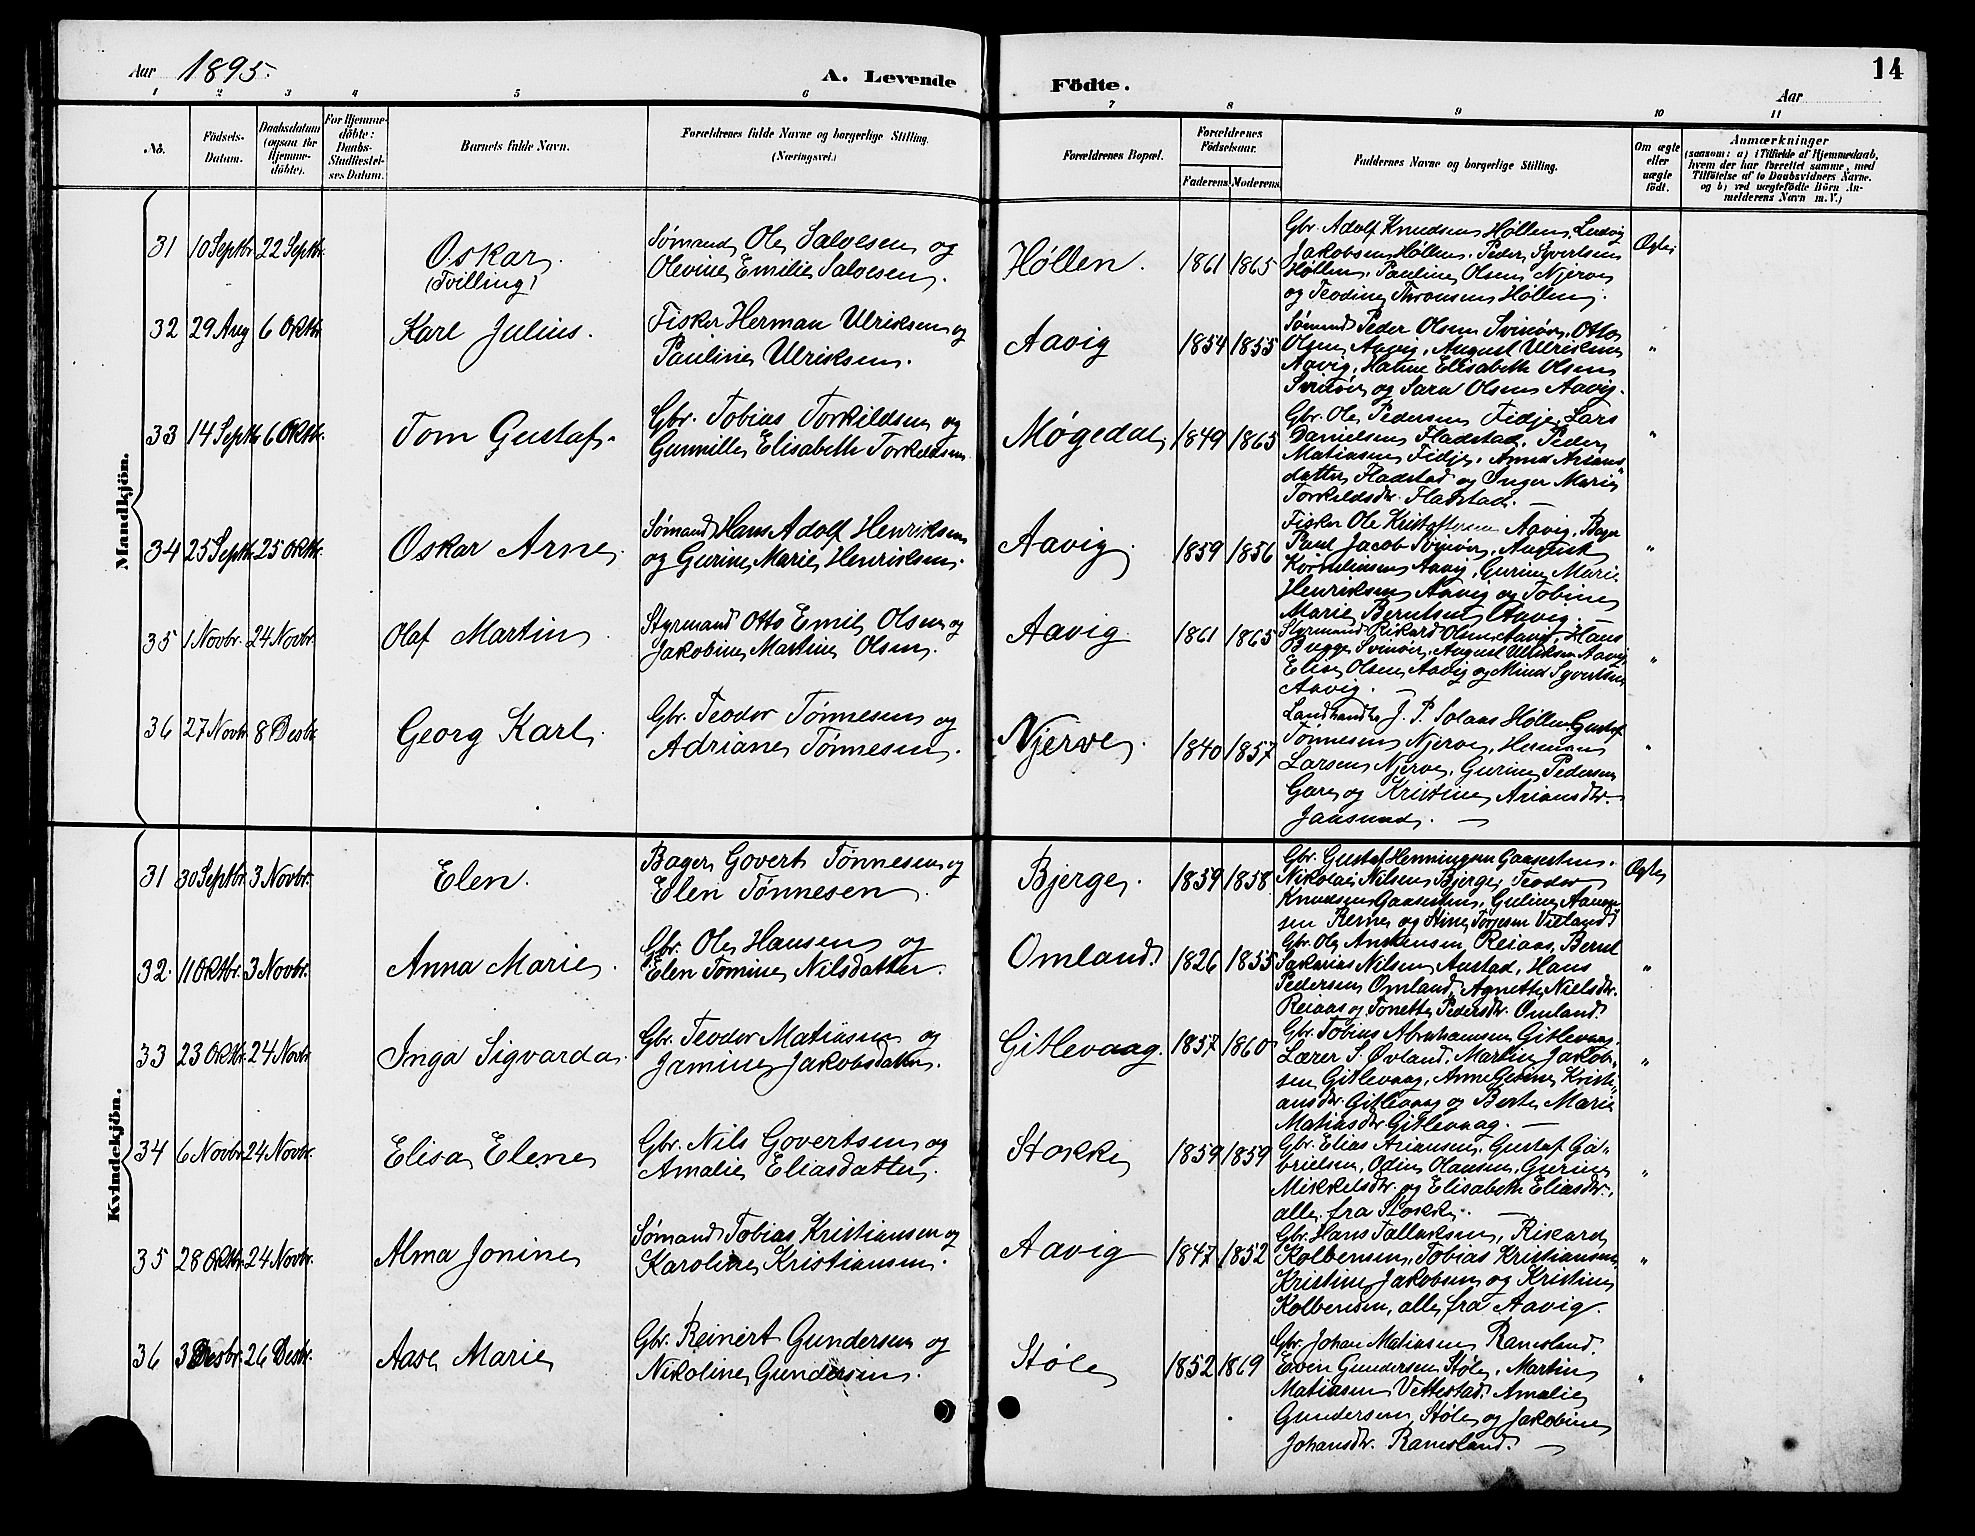 Aar 1895.
A. Levende Födte.
14
Aar
1 2 3 4 5 6 7 8 9 10 11
No.
Födsels-Datum.
Daabsdatum (ogsaa for Hjemme-döbte).
For Hjemme-döbte: Daabs-Stadfæstel-ses Datum.
Barnets fulde Navn.
Forældrenes fulde Navne og borgerlige Stilling. (Næringsvei.)
Forældrenes Bopæl.
Forældrenes Födselsaar.
Faderens. Moderens.
Faddernes Navne og borgerlige Stilling.
Om ægte eller uægte födt.
Anmærkninger
(saasom: a) i Tilfælde af Hjemmedaab,
hvem der har forrettet samme, med
Tilföielse af to Daabsvidners Navne,
og b) ved uægtefödte Börn An-
melderens Navn m. V.)
Mandkjön.
31 10 Septbr. 22 Septbr. Oskar (Tvilling)
Sømand Ole Salvesen og
Olevine Emilie Salvesen.
Høllen. 1861 1865
Gbr. Adolf Knudsen Høllen, Ludvig
Jakobsen Høllen, Peder Syvertsen
Høllen, Pauline Olsen Njerve
og Teodine Thronsen Høllen.
Ægte
32 29 Aug 6 Oktbr. Karl Julius.
Fisker Herman Ulriksen og
Pauline Ulriksen.
Aavig 1854 1855
Sømand Peder Olsen Svinør, Otto
Olsen Aavig, August Ulriksen
Aavig, Elisabeth Olsen
Svinør og Sara Olsen Aavig.
"
33 14 Septbr 6 Oktbr. Tom Gustaf.
Gbr. Tobias Torkildsen og
Gunnille Elisabeth Torkildsen
Møgedal 1849 1865
Gbr. Ole Pedersen Fidje, Lars
Danielsen Fladstad, Peder
Matiasen Fidje, Anne Arians-
datter Fladstad og Inger Marie
Torkildsdtr. Fladstad. —
"
34 25 Septbr. 25 Oktbr. Oskar Arne.
Sømand Hans Adolf Henriksen
og Gurine Marie Henriksen.
Aavig. 1859 1856
Fisker Ole Kristoffersen Aavig,
Paul Jacob Svinør, August
Kornelinsen Aavig, Gurine Marie
Henriksen Aavig og Tobine
Marie Berntsen Aavig. —
"
35 1 Novbr. 24 Novbr. Olaf Martin
Styrmand Otto Emil Olsen og
Jakobine Martine Olsen.
Aavig. 1861 1865
Styrmand Rikard Olsen Aavig, Hans
Bugge Svinør, August Ulriksen Aavig,
Elise Olsen Aavig og Mina Syvertsen
Aavig. —
"
36 27 Novbr 8 Desbr. Georg Karl.
Gbr. Teodor Tønnesen og
Adriane Tønnesen.
Njerve. 1840 1857
Landhandler J. P. Solaas Høllen, Gustaf
Tønnesen Njerve, Herman
Larsen Njerve, Gurine Pedersen
Gare og Kristine Ariansdtr.
Jaasund. —
"
Kvindekjön.
31 30 Septbr. 3 Novbr. Elen.
Bager Govert Tønnesen og
Elen Tønnesen.
Bjerge. 1859 1858
Gbr. Gustaf Henningsen Gaasesten,
Nikolai Nilsen Bjerge, Teodor
Knudsen Gaasesten, Guline Aanen-
sen Berne og Stine Torjesen Valand
Ægte
32. 11 Oktbr. 3 Novbr. Anna Marie.
Gbr. Ole Hansen og
Elen Tomine Nilsdatter.
Omland. 1826 1855
Gbr. Ole Reiaas, Bernt
Sakarias Nilsen Austad, Hans
Pedersen Omland, Agnette Nielsdtr.
Reiaas og Tonette Pedersdtr. Omland.
"
33 23 Oktbr. 24 Novbr. Inga Sigvarda.
Gbr. Teodor Matiasen og
Jamine Jakobsdatter.
Gitlevaag. 1857 1860
Gbr. Tobias Abrahamsen Gitlevaag,
Lærer S. Øvland, Martin Jakob-
sen Gitlevaag, Anne Gurine Kristi-
ansdtr. Gitlevaag og Berte Marie
Matiasdtr Gitlevaag. —
"
34 6 Novbr. 24 Novbr. Elisa Elene
Gbr. Nils Govertsen og
Amalie Eliasdatter.
Stokke 1859 1859
Gbr. Elias Ariansen, Gustaf Ga-
brielsen, Odin Olausen, Gurine
Mikkelsdtr. og Elisabeth Eliasdtr.,
alle fra Stokke. —
"
35 28 Oktbr. 24 Novbr. Alma Jonine
Sømand Tobias Kristiansen og
Karoline Kristiansen.
Aavig 1847 1852
Gbr. Hans Tallaksen, Rikard
Kolbensen, Tobias Kristiansen,
Kristine Jakobsen og Kristine
Kolbensen, alle fra Aavig.
"
36 3 Desbr. 26 Desbr. Aase Marie
Gbr. Reinert Gundersen og
Nikoline Gundersen.
Støle 1852 1869
Gbr. Johan Matiasen Ramsland,
Even Gundersen Støle, Martin
Matiasen Vettestad, Amalie
Gundersen Støle og Jakobine
Johansdtr. Ramsland. —
"